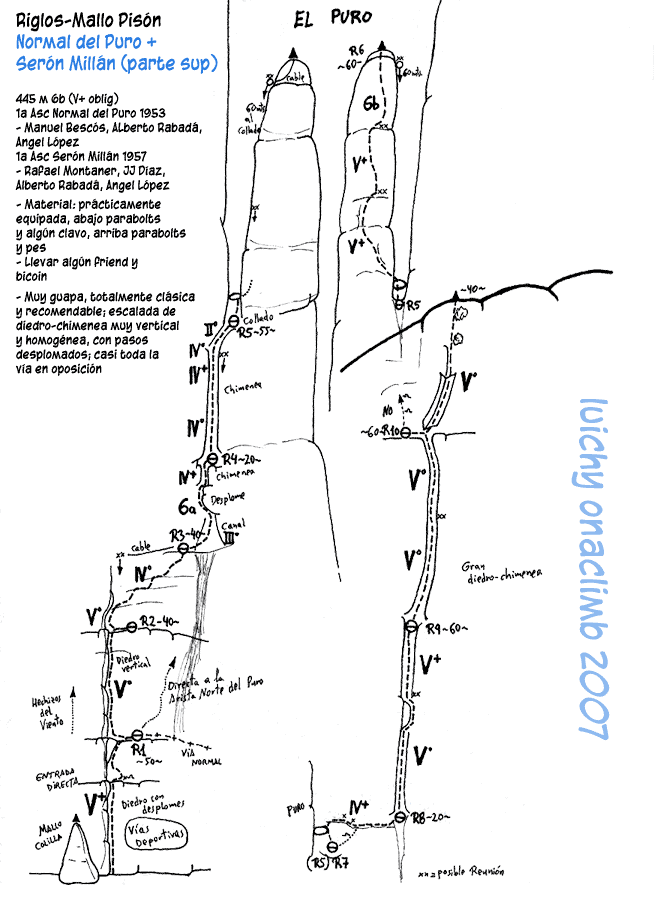 Riglos-Mallo Pisón
Normal del Puro +
Serón Millán (parte sup)
445 m 6b (V+ oblig)
1a Asc Normal del Puro 1953
- Manuel Bescós, Alberto Rabadá,
Angel López
1a Asc Serón Millán 1957
- Rafael Montaner, JJ Díaz,
Alberto Rabadá, Angel López
- Material: prácticamente
equipada, abajo parabolts
y algún clavo, arriba parabolts
y pes
- Llevar algún friend y
bicoin
- Muy guapa, totalmente clásica
y recomendable; escalada de
diedro-chimenea muy vertical
y homogénea, con pasos
desplomados; casi toda la
vía en oposición
EL PURO
cable
60mts
al
collado
xx
Collado
R5~55~
II°
IV°
IV+
xx
Chimenea
IV°
R4~20~
IV+
Chimenea
Desplome
6a
Canal
III°
R3~40~
cable
xx
IV°
V°
R2~40~
Diedro
vertical
V°
Directa a la
Arista Norte del Puro
Hechizos
del
Viento
R1
~50~
VíA
NORMAL
ENTRADA
DIRECTA
V+
Diedro con
desplomes
Vías
Deportivas
MALLO
COLILLA
R6
~60~
xx
60mts
6b
xx
V+
xx
V+
R5
~40~
V°
NO
~60~R10
V°
xx
V°
Gran
diedro-chimenea
R9~60~
V+
xx
V°
PURO
IV+
x x
R8~20~
(R5) R7
xx=posible Reunión
luichy onaclimb 2007